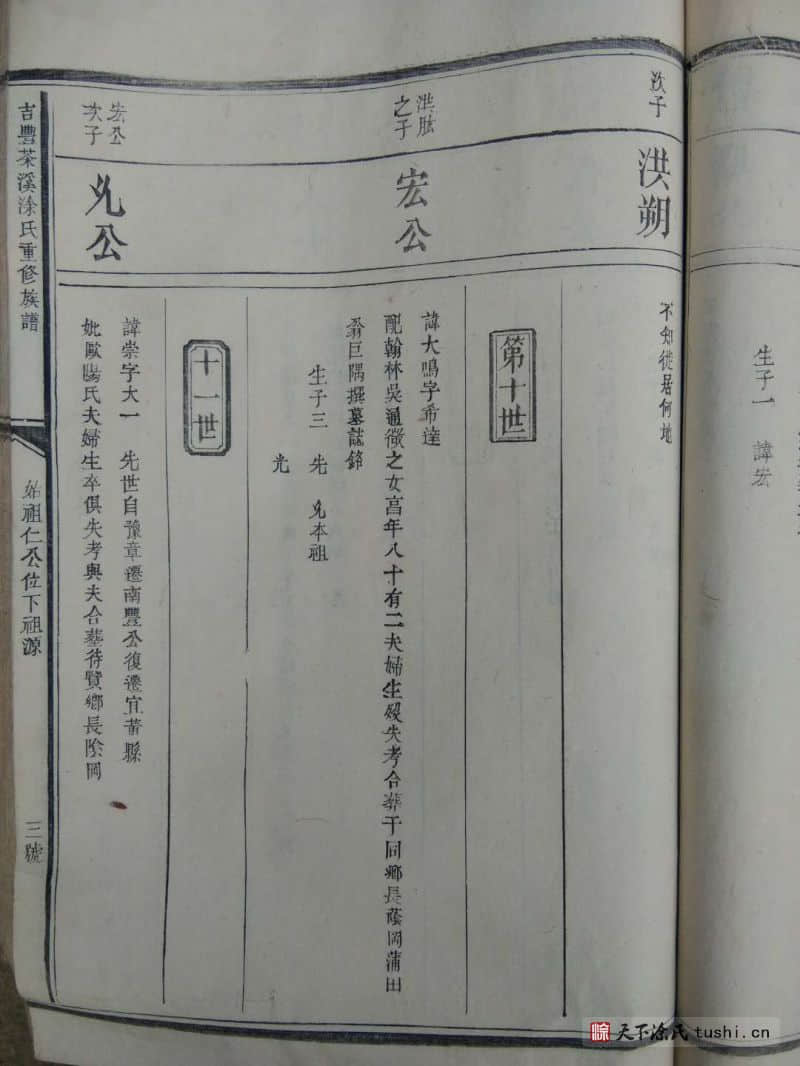 生子一 諱宏
次子
洪朔
不知徙居何地
第十世
洪肱
之子
宏公
諱大鳴字希達
配翰林吳通微之女富年八十有二夫婦生殁失考合葬于同鄉長蔭岡蒲田
翁巨隅撰墓誌銘
生子三 先 兇本祖
光
十一世
宏公
次子
兇公
諱崇字大一 先世自豫章遷南豐公復遷宜黃縣
妣歐陽氏夫婦生卒俱失考與夫合墓待賢鄉長陰岡
吉豐茶溪涂氏重修族譜
始祖仁公位下祖源
三號
天下涂氏 tushi.cn